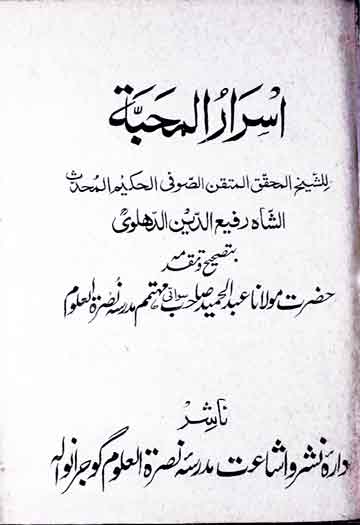 اسرار المحبة
للشيخ المحقق المتقن الصوفى الحكيم المحدث
الشاه رفيع الدين الدهلوىؒ
بتصحيح و تقدمه
حضرت مولانا عبد الحميد صاحب سواتی مہتمم مدرسہ نصرة العلوم
ناشر
دارہ نشر و اشاعت مدرسہ نصرة العلوم گوجرانوالہ